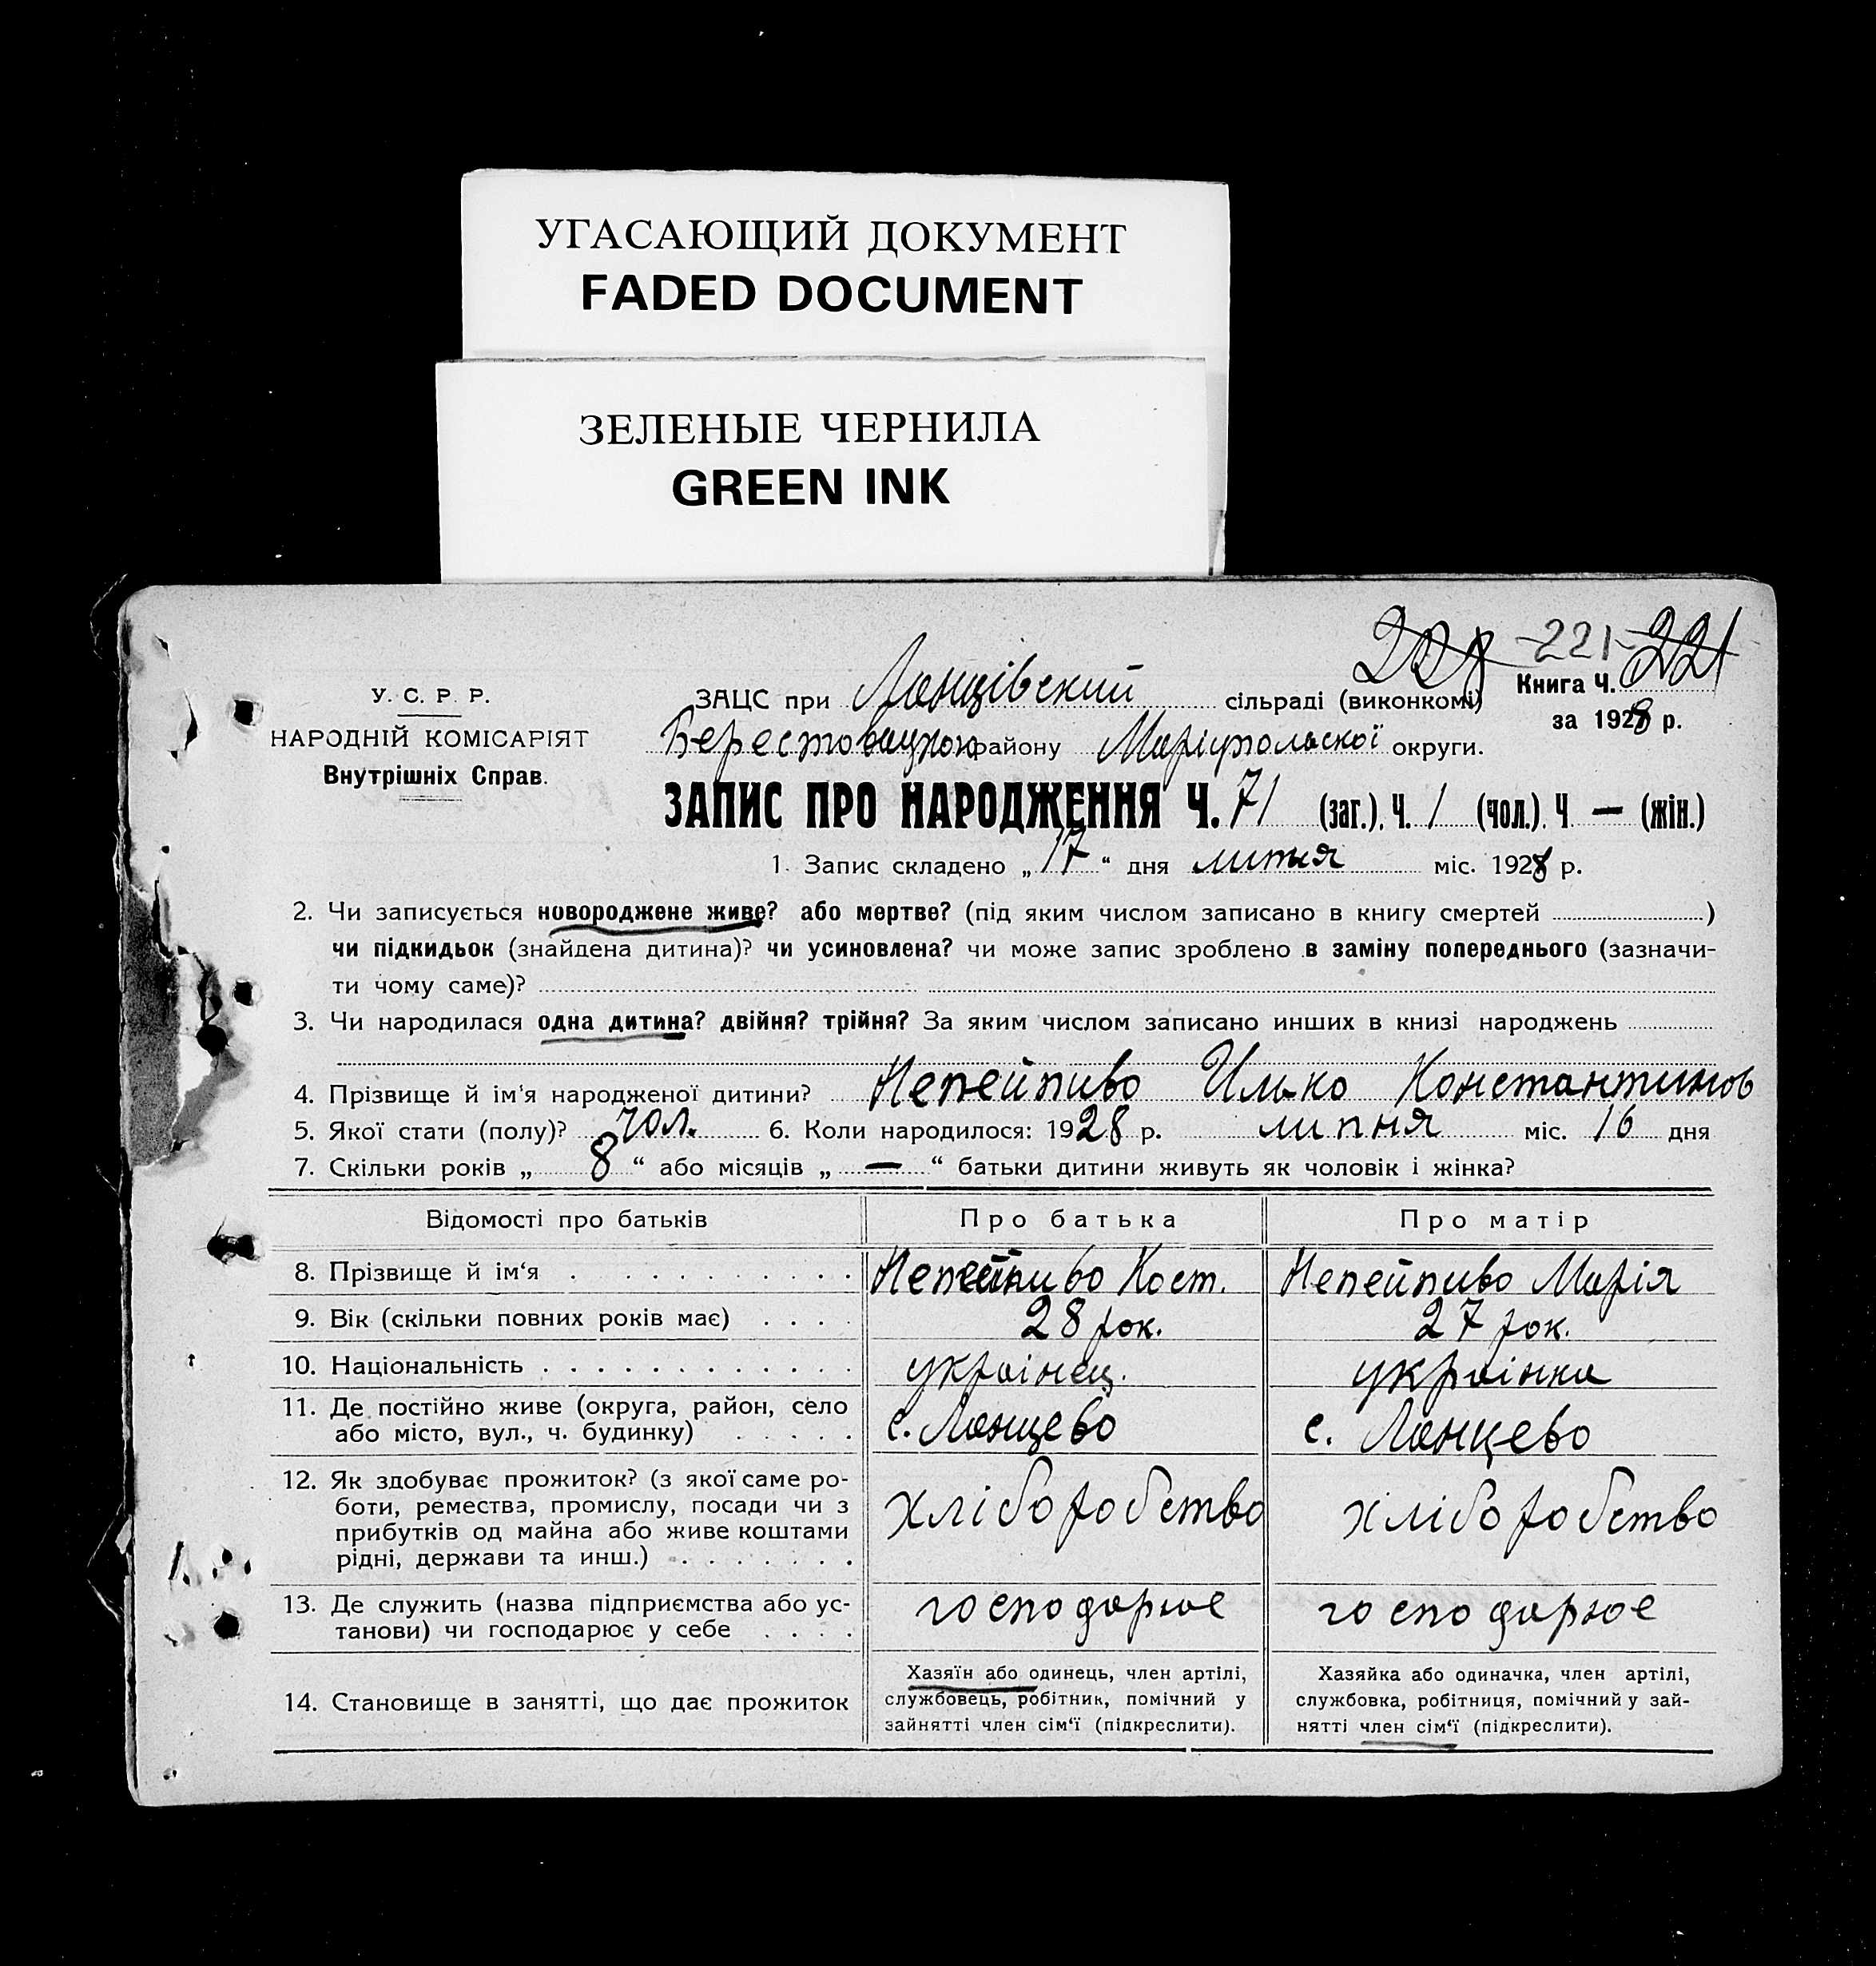 УГАСАЮЩИЙ ДОКУМЕНТ
FADED DOCUMENT
ЗЕЛЕНЫЕ ЧЕРНИЛА
GREEN INK
228 -221- 221
У. С. Р. Р.
НАРОДНІЙ КОМІСАРІЯТ
Внутрішніх Справ.
ЗАЦС при Ланцівский сільраді (виконкомі)
Книга Ч.
за 1928 р.
району Маріупольскої округи.
ЗАПИС ПРО НАРОДЖЕННЯ Ч. 71 (заг.). Ч. 1 (чол.). Ч — (жін.)
1. Запис складено „17“ дня липня міс. 1928 р.
2. Чи записується новороджене живе? або мертве? (під яким числом записано в книгу смертей )
чи підкидьок (знайдена дитина)? чи усиновлена? чи може запис зроблено в заміну попереднього (зазначи-
ти чому саме)?
3. Чи народилася одна дитина? двійня? трійня? За яким числом записано инших в книзі народжень
4. Прізвище й ім'я народженої дитини? Непейпиво Илько Константинов
5. Якої стати (полу)? чол. 6. Коли народилося: 1928 р. липня міс. 16 дня
7. Скільки років „ 8 “ або місяців „ — “ батьки дитини живуть як чоловік і жінка?
Відомості про батьків Про батька Про матір
8. Прізвище й ім‘я . . . . . . . . . . Непейпиво Кост. Непейпиво Марія
9. Вік (скільки повних років має) . . . . 28 рок. 27 рок.
10. Національність . . . . . . . . . . . . українец. українка
11. Де постійно живе (округа, район, село
або місто, вул., ч. будинку) . . . . . с. Ланцево с. Ланцево
12. Як здобуває прожиток? (з якої саме ро-
боти, ремества, промислу, посади чи з
прибутків од майна або живе коштами
рідні, держави та инш.) . . . . . . . .
хліборобство хліборобство
13. Де служить (назва підприємства або ус-
танови) чи господарює у себе . . . .
господарює господарює
14. Становище в занятті, що дає прожиток
Хазяїн або одинець, член артілі,
службовець, робітник, помічний у
зайнятті член сім‘ї (підкреслити).
Хазяйка або одиначка, член артілі,
службовка, робітниця, помічний у зай-
нятті член сім‘ї (підкреслити).